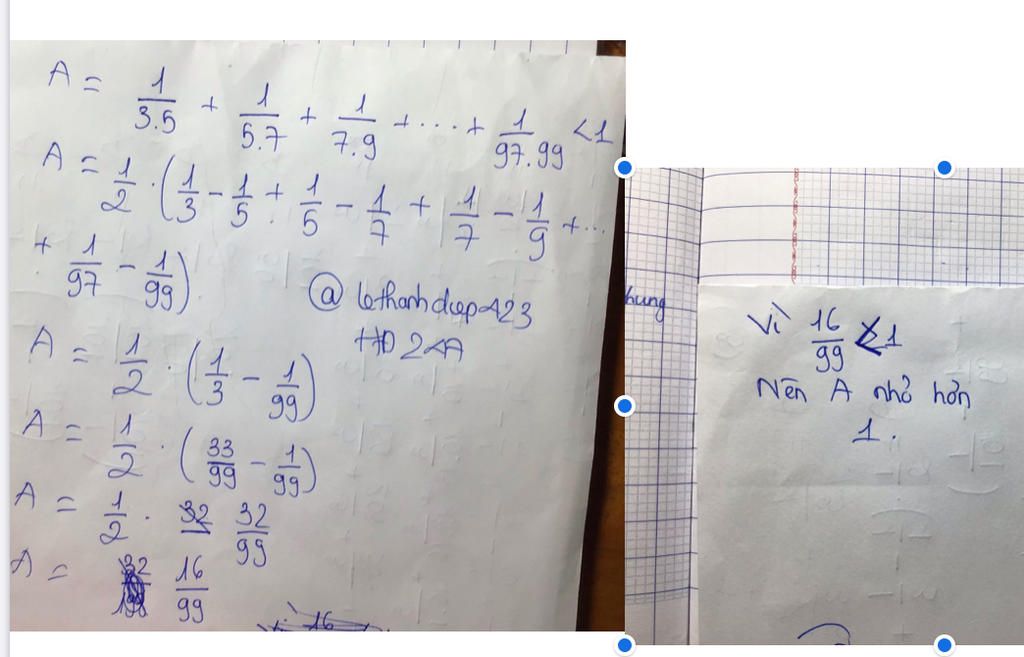 A = 1/3.5 + 1/5.7 + 1/7.9 + ... + 1/97.99 < 1
A = 1/2 . (1/3 - 1/5 + 1/5 - 1/7 + 1/7 - 1/9 + ...
+ 1/97 - 1/99)
A = 1/2 . (1/3 - 1/99)
A = 1/2 . (33/99 - 1/99)
A = 1/2 . 32/99
A = 16/99
16
hung
Vì 16/99 < 1
Nên A nhỏ hơn
1.